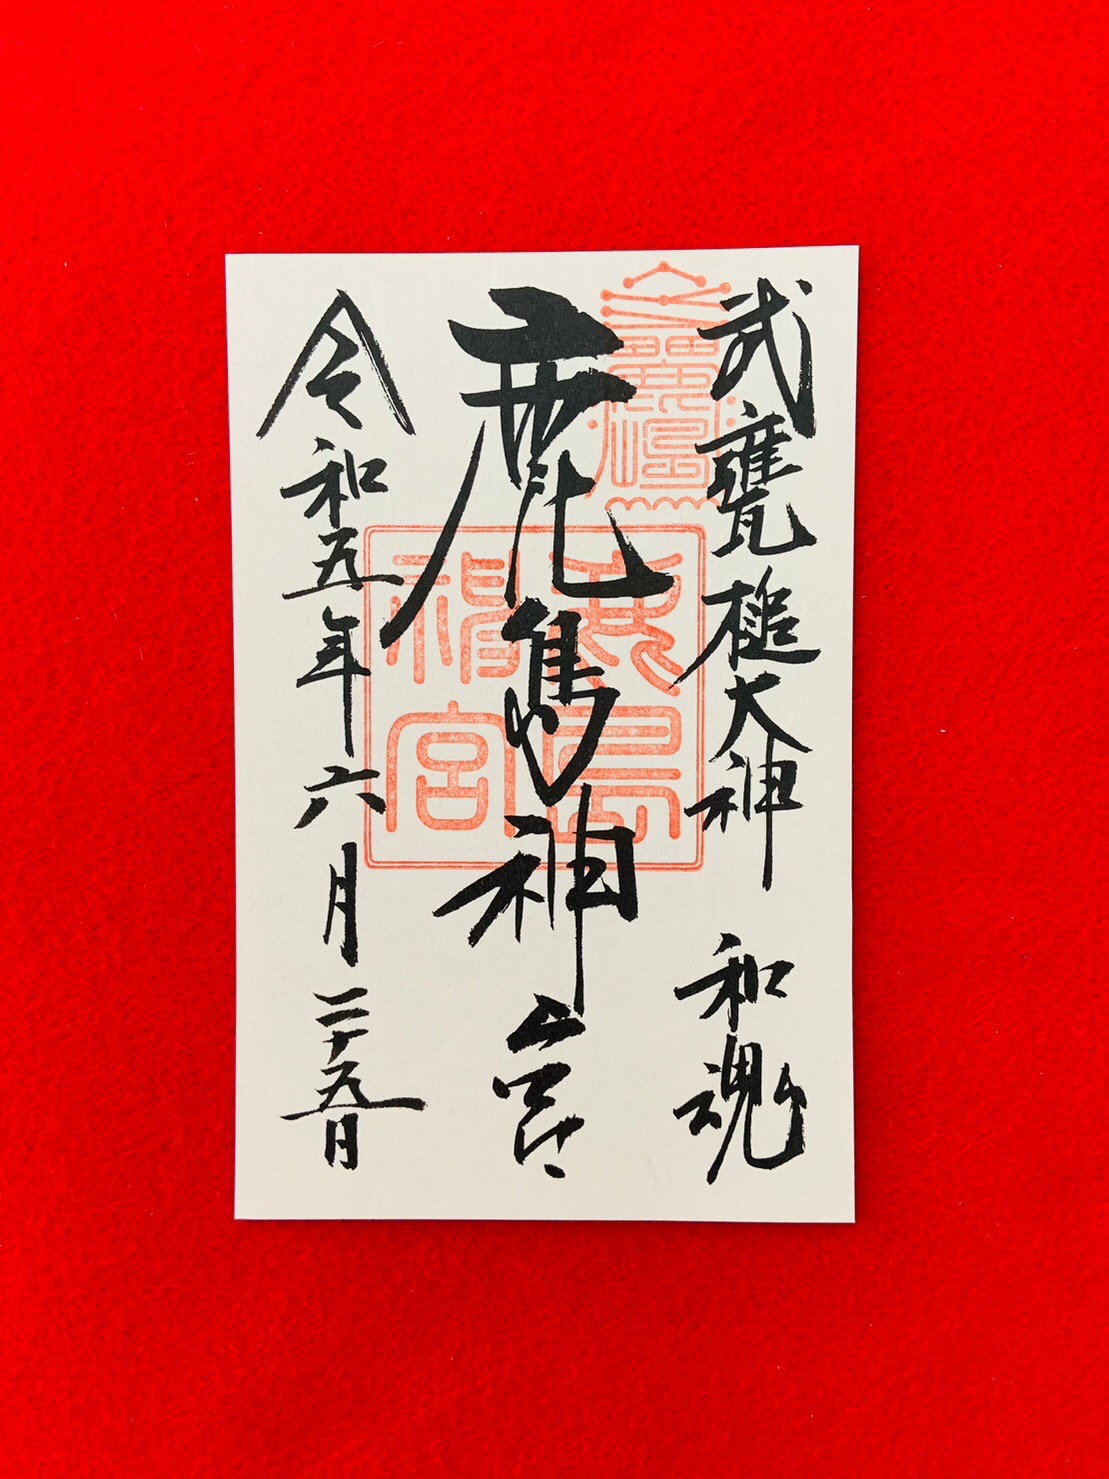 武甕槌大神 和魂
鹿島神宮
令和五年六月二十五日
鹿島
神宮